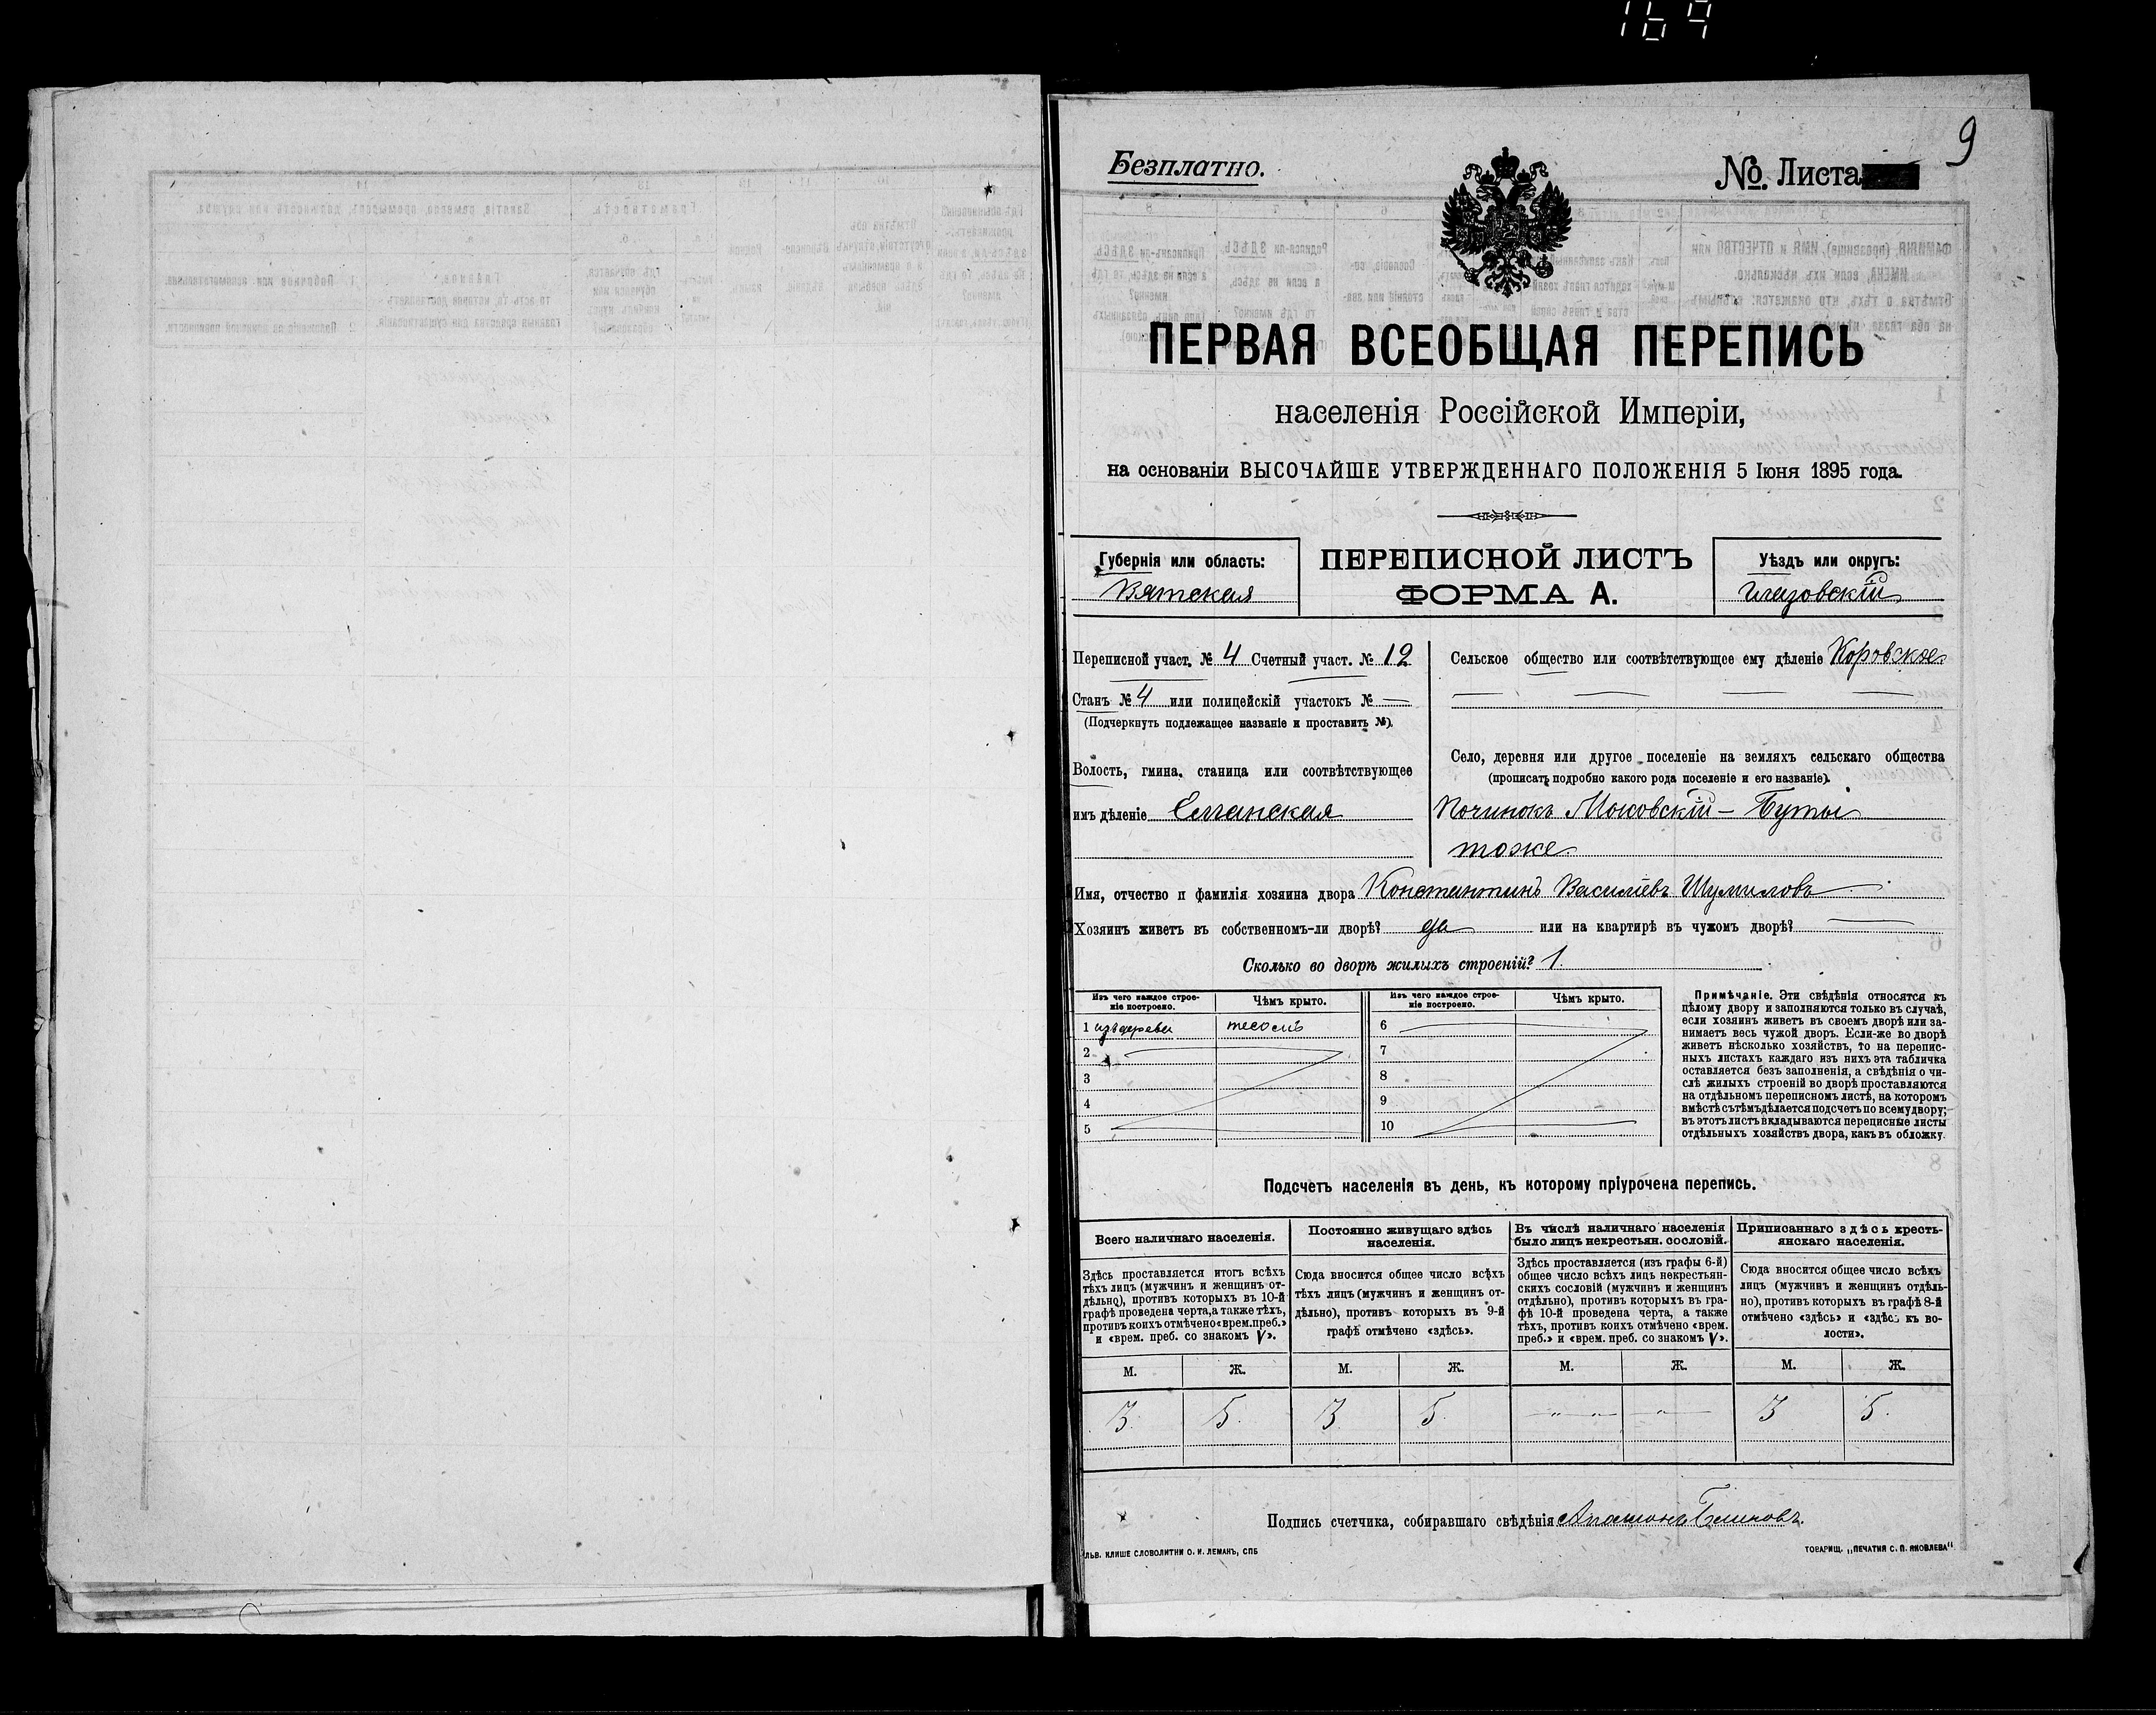 169
9
Безплатно.
№. Листа
ПЕРВАЯ ВСЕОБЩАЯ ПЕРЕПИСЬ
населенія Россійской Имперіи,
на основаніи ВЫСОЧАЙШЕ УТВЕРЖДЕННАГО ПОЛОЖЕНІЯ 5 Іюня 1895 года.
Губернія или область:
Вятская
ПЕРЕПИСНОЙ ЛИСТЪ
ФОРМА А.
Уѣздъ или округъ:
Глазовскій
Переписной участ. № 4 Счетный участ. № 12
Станъ № 4 или полицейскій участокъ № —
(Подчеркнуть подлежащее названіе и проставить №).
Волость, гмина, станица или соотвѣтствующее
имъ дѣленіе Елганская
Сельское общество или соотвѣтствующее ему дѣленіе Коровское
Село, деревня или другое поселеніе на земляхъ сельскаго общества
(прописать подробно какого рода поселеніе и его названіе).
Починокъ Моковскій — Буты
тоже.
Имя, отчество и фамилія хозяина двора Константинъ Василіевъ Шумиловъ
Хозяинъ живетъ въ собственномъ-ли дворѣ? да или на квартирѣ въ чужомъ дворѣ? —
Сколько во дворѣ жилыхъ строеній? 1.
Изъ чего каждое строе-
ніе построено.
Чѣмъ крыто.
1 изъ дерева тесомъ
2
3
4
5
Изъ чего каждое строе-
ніе построено.
Чѣмъ крыто.
6
7
8
9
10
Примѣчаніе. Эти свѣдѣнія относятся къ
цѣлому двору и заполняются только въ случаѣ,
если хозяинъ живетъ въ своемъ дворѣ или за-
нимаетъ весь чужой дворъ. Если-же во дворѣ
живетъ нѣсколько хозяйствъ, то на перепис-
ныхъ листахъ каждаго изъ нихъ эта табличка
оставляется безъ заполненія, а свѣдѣнія о чи-
слѣ жилыхъ строеній во дворѣ проставляются
на отдѣльномъ переписномъ листѣ, на которомъ
вмѣстѣ съ тѣмъ дѣлается подсчетъ по всему двору;
въ этотъ листъ вкладываются переписные листы
отдѣльныхъ хозяйствъ двора, какъ въ обложку.
Подсчетъ населенія въ день, къ которому пріурочена перепись.
Всего наличнаго населенія.
Здѣсь проставляется итогъ всѣхъ
тѣхъ лицъ (мужчинъ и женщинъ от-
дѣльно), противъ которыхъ въ 10-й
графѣ проведена черта, а также тѣхъ,
противъ коихъ отмѣчено «врем. преб.»
и «врем. преб. со знакомъ V».
Постоянно живущаго здѣсь
населенія.
Сюда вносится общее число всѣхъ
тѣхъ лицъ (мужчинъ и женщинъ от-
дѣльно), противъ которыхъ въ 9-й
графѣ отмѣчено «здѣсь».
Въ числѣ наличнаго населенія
было лицъ некрестьян. сословій.
Здѣсь проставляется (изъ графы 6-й)
общее число всѣхъ лицъ некрестьян-
скихъ сословій (мужчинъ и женщинъ
отдѣльно), противъ которыхъ въ гра-
фѣ 10-й проведена черта, а также
тѣхъ, противъ коихъ отмѣчено «врем.
преб.» и «врем. преб. со знакомъ V».
Приписаннаго здѣсь кресть-
янскаго населенія.
Сюда вносится общее число всѣхъ
лицъ (мужчинъ и женщинъ отдѣль-
но), противъ которыхъ въ графѣ 8-й
отмѣчено «здѣсь» и «здѣсь къ во-
лости».
М. Ж. М. Ж. М. Ж. М. Ж.
3. 5. 3 5. — — 3 5.
Подпись счетчика, собиравшаго свѣдѣнія
ЛЬВ. КЛИШЕ СЛОВОЛИТНИ О. И. ЛЕМАНЪ, СПБ
ТОВАРИЩ. „ПЕЧАТНЯ С. П. ЯКОВЛЕВА“